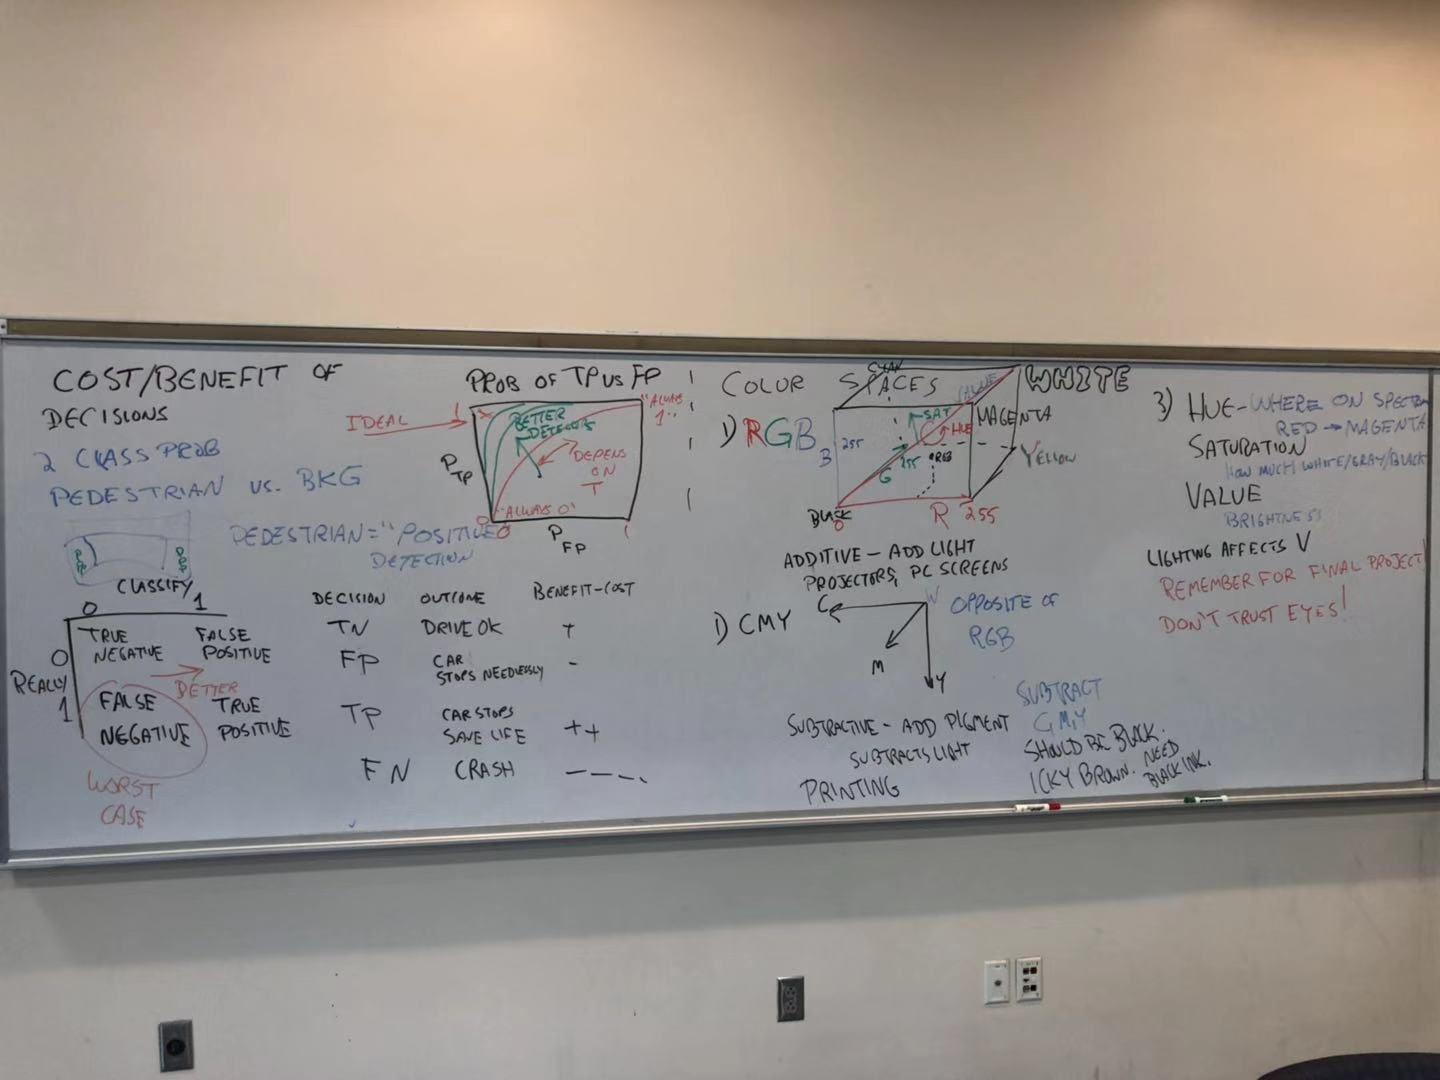 COST/BENEFIT OF
DECISIONS
2 CLASS PROB
PEDESTRIAN VS. BKG
PEDESTRIAN = "POSITIVE
DETECTION
CLASSIFY
0 1
TRUE NEGATIVE FALSE POSITIVE
0
REALLY
1
BETTER
FALSE NEGATIVE TRUE POSITIVE
WORST
CASE
PROB OF TP VS FP
IDEAL
1
BETTER
DETECTORS
"ALWAYS
1"
DEPENDS
ON
T
P TP
"ALWAYS 0"
0 0
1
P FP
DECISION OUTCOME BENEFIT-COST
TN DRIVE OK +
FP CAR
STOPS NEEDLESSLY -
TP CAR STOPS
SAVE LIFE ++
FN CRASH ----
COLOR SPACES
1) RGB
CYAN
VALUE
WHITE
SAT
HUE
MAGENTA
255
B
255
G
RGB
YELLOW
BLACK
0
R 255
ADDITIVE - ADD LIGHT
PROJECTORS, PC SCREENS
1) CMY
C
W
M
Y
OPPOSITE OF
RGB
SUBTRACTIVE - ADD PIGMENT
SUBTRACTS LIGHT
PRINTING
SUBTRACT
CMY
SHOULD BE BLACK.
ICKY BROWN. NEED
BLACK INK.
3) HUE - WHERE ON SPECTRUM
RED → MAGENTA
SATURATION
HOW MUCH WHITE/GRAY/BLACK
VALUE
BRIGHTNESS
LIGHTING AFFECTS V
REMEMBER FOR FINAL PROJECT!
DON'T TRUST EYES!